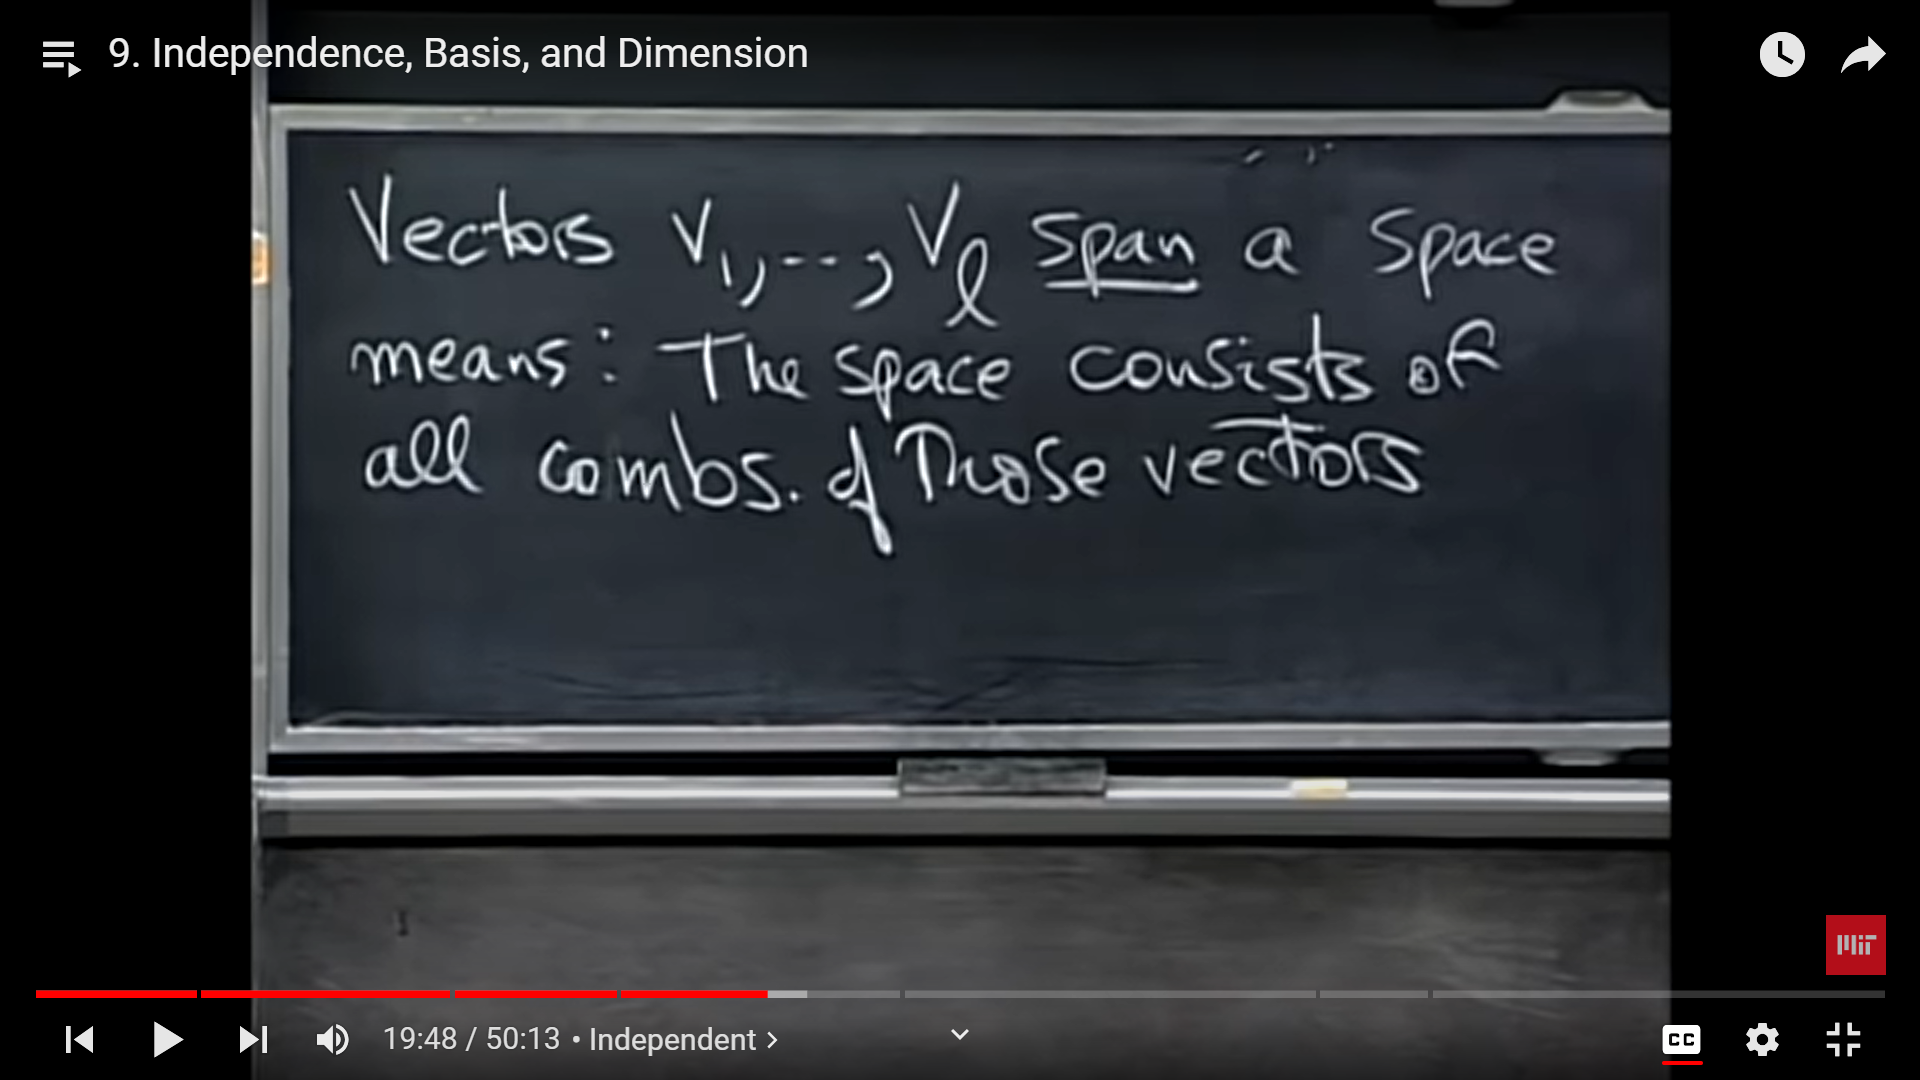 9. Independence, Basis, and Dimension
Vectors v1,..., vl span a space
means: The space consists of
all combs. of those vectors
MIT
19:48 / 50:13 • Independent >
CC